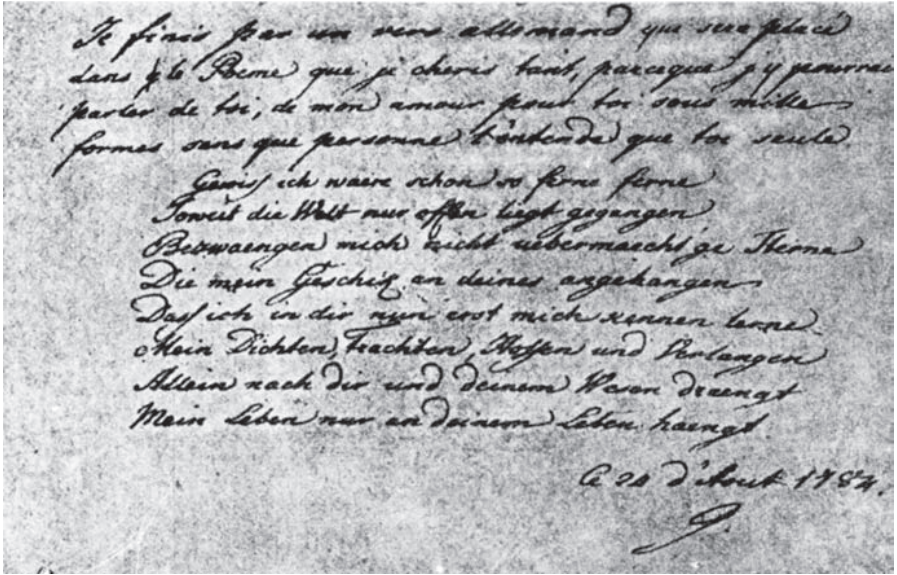 Je finis par un vers allemand qui sera placé
dans le Poeme que je cheris tant, parceque j'y pourrai
parler de toi, de mon amour pour toi sous mille
formes sans que personne l'entende que toi seule
Gewiss ich waere schon so ferne ferne
Soweit die Welt nur offen liegt gegangen
Bezwaengen mich nicht uebermaecht'ge Sterne
Die mein Geschik an deines angehangen
Dass ich in dir nun erst mich kennen lerne
Mein Dichten, Trachten, Hoffen und Verlangen
Allein nach dir und deinem Wesen draengt
Mein Leben nur an deinem Leben haengt
Ce 24 d'Aout 1784.
G.